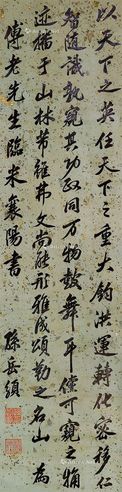 以天下之英任天下之重大鈞洪運轉化密移仁
智隨識孰窺其功同万物鼓舞耳僅可窺之
迹播于山林弗文尚能形雅成頌勒之名山 為
傅老先生臨米襄陽書
孫岳頒